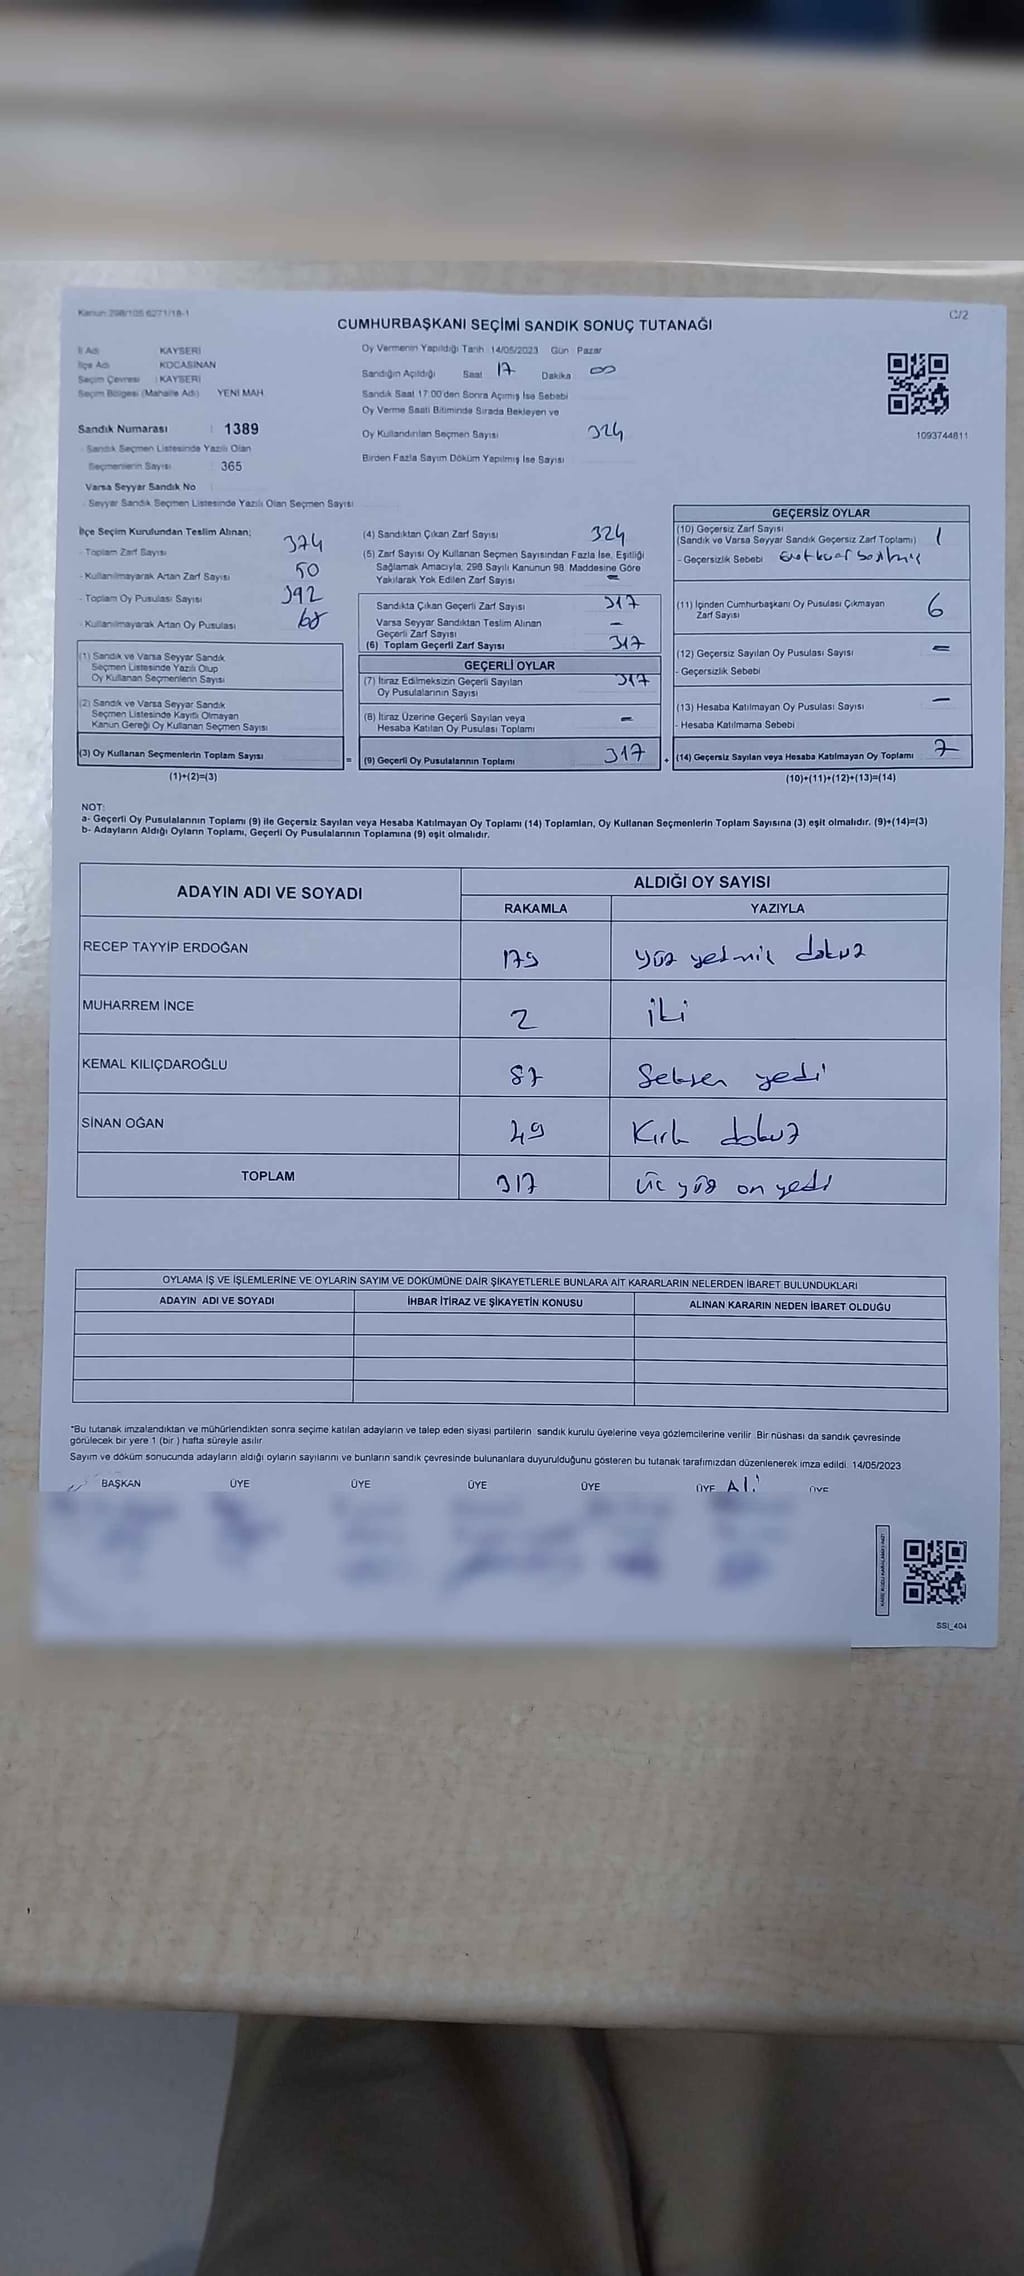 Kanun:298/105 6271/18-1
C/2
CUMHURBAŞKANI SEÇİMİ SANDIK SONUÇ TUTANAĞI
İl Adı KAYSERİ
İlçe Adı KOCASİNAN
Seçim Çevresi : KAYSERİ
Seçim Bölgesi (Mahalle Adı) YENİ MAH.
Sandık Numarası : 1389
- Sandık Seçmen Listesinde Yazılı Olan
Seçmenlerin Sayısı : 365
Varsa Seyyar Sandık No
- Seyyar Sandık Seçmen Listesinde Yazılı Olan Seçmen Sayısı
Oy Vermenin Yapıldığı Tarih :14/05/2023 Gün : Pazar
Sandığın Açıldığı Saat 17 Dakika 00
Sandık Saat 17:00'den Sonra Açımış İse Sebebi
Oy Verme Saati Bitiminde Sırada Bekleyen ve
Oy Kullandırılan Seçmen Sayısı 324
Birden Fazla Sayım Döküm Yapılmış İse Sayısı
1093744811
İlçe Seçim Kurulundan Teslim Alınan;
- Toplam Zarf Sayısı 374
- Kullanılmayarak Artan Zarf Sayısı 50
- Toplam Oy Pusulası Sayısı 392
- Kullanılmayarak Artan Oy Pusulası 68
(1) Sandık ve Varsa Seyyar Sandık
Seçmen Listesinde Yazılı Olup
Oy Kullanan Seçmenlerin Sayısı
(2) Sandık ve Varsa Seyyar Sandık
Seçmen Listesinde Kayıtlı Olmayan
Kanun Gereği Oy Kullanan Seçmen Sayısı
(3) Oy Kullanan Seçmenlerin Toplam Sayısı
(1)+(2)=(3)
(4) Sandıktan Çıkan Zarf Sayısı 324
(5) Zarf Sayısı Oy Kullanan Seçmen Sayısından Fazla İse, Eşitliği
Sağlamak Amacıyla, 298 Sayılı Kanunun 98. Maddesine Göre
Yakılarak Yok Edilen Zarf Sayısı –
Sandıkta Çıkan Geçerli Zarf Sayısı 317
Varsa Seyyar Sandıktan Teslim Alınan
Geçerli Zarf Sayısı –
(6) Toplam Geçerli Zarf Sayısı 317
GEÇERLİ OYLAR
(7) İtiraz Edilmeksizin Geçerli Sayılan
Oy Pusulalarının Sayısı 317
(8) İtiraz Üzerine Geçerli Sayılan veya
Hesaba Katılan Oy Pusulası Toplamı –
= (9) Geçerli Oy Pusulalarının Toplamı 317 +
GEÇERSİZ OYLAR
(10) Geçersiz Zarf Sayısı
(Sandık ve Varsa Seyyar Sandık Geçersiz Zarf Toplamı) 1
- Geçersizlik Sebebi
(11) İçinden Cumhurbaşkanı Oy Pusulası Çıkmayan
Zarf Sayısı 6
(12) Geçersiz Sayılan Oy Pusulası Sayısı –
- Geçersizlik Sebebi
(13) Hesaba Katılmayan Oy Pusulası Sayısı –
- Hesaba Katılmama Sebebi
(14) Geçersiz Sayılan veya Hesaba Katılmayan Oy Toplamı 7
(10)+(11)+(12)+(13)=(14)
NOT:
a- Geçerli Oy Pusulalarının Toplamı (9) ile Geçersiz Sayılan veya Hesaba Katılmayan Oy Toplamı (14) Toplamları, Oy Kullanan Seçmenlerin Toplam Sayısına (3) eşit olmalıdır. (9)+(14)=(3)
b- Adayların Aldığı Oyların Toplamı, Geçerli Oy Pusulalarının Toplamına (9) eşit olmalıdır.
ADAYIN ADI VE SOYADI ALDIĞI OY SAYISI
RAKAMLA YAZIYLA
RECEP TAYYİP ERDOĞAN 179 yüz yetmiş dokuz
MUHARREM İNCE 2 iki
KEMAL KILIÇDAROĞLU 87 Seksen yedi
SİNAN OĞAN 49 Kırk dokuz
TOPLAM 317 üç yüz on yedi
OYLAMA İŞ VE İŞLEMLERİNE VE OYLARIN SAYIM VE DÖKÜMÜNE DAİR ŞİKAYETLERLE BUNLARA AİT KARARLARIN NELERDEN İBARET BULUNDUKLARI
ADAYIN ADI VE SOYADI İHBAR İTİRAZ VE ŞİKAYETİN KONUSU ALINAN KARARIN NEDEN İBARET OLDUĞU
*Bu tutanak imzalandıktan ve mühürlendikten sonra seçime katılan adayların ve talep eden siyasi partilerin sandık kurulu üyelerine veya gözlemcilerine verilir. Bir nüshası da sandık çevresinde
görülecek bir yere 1 (bir ) hafta süreyle asılır.
Sayım ve döküm sonucunda adayların aldığı oyların sayılarını ve bunların sandık çevresinde bulunanlara duyurulduğunu gösteren bu tutanak tarafımızdan düzenlenerek imza edildi. 14/05/2023
BAŞKAN ÜYE ÜYE ÜYE ÜYE ÜYE Ali ÜYE
SSI_404